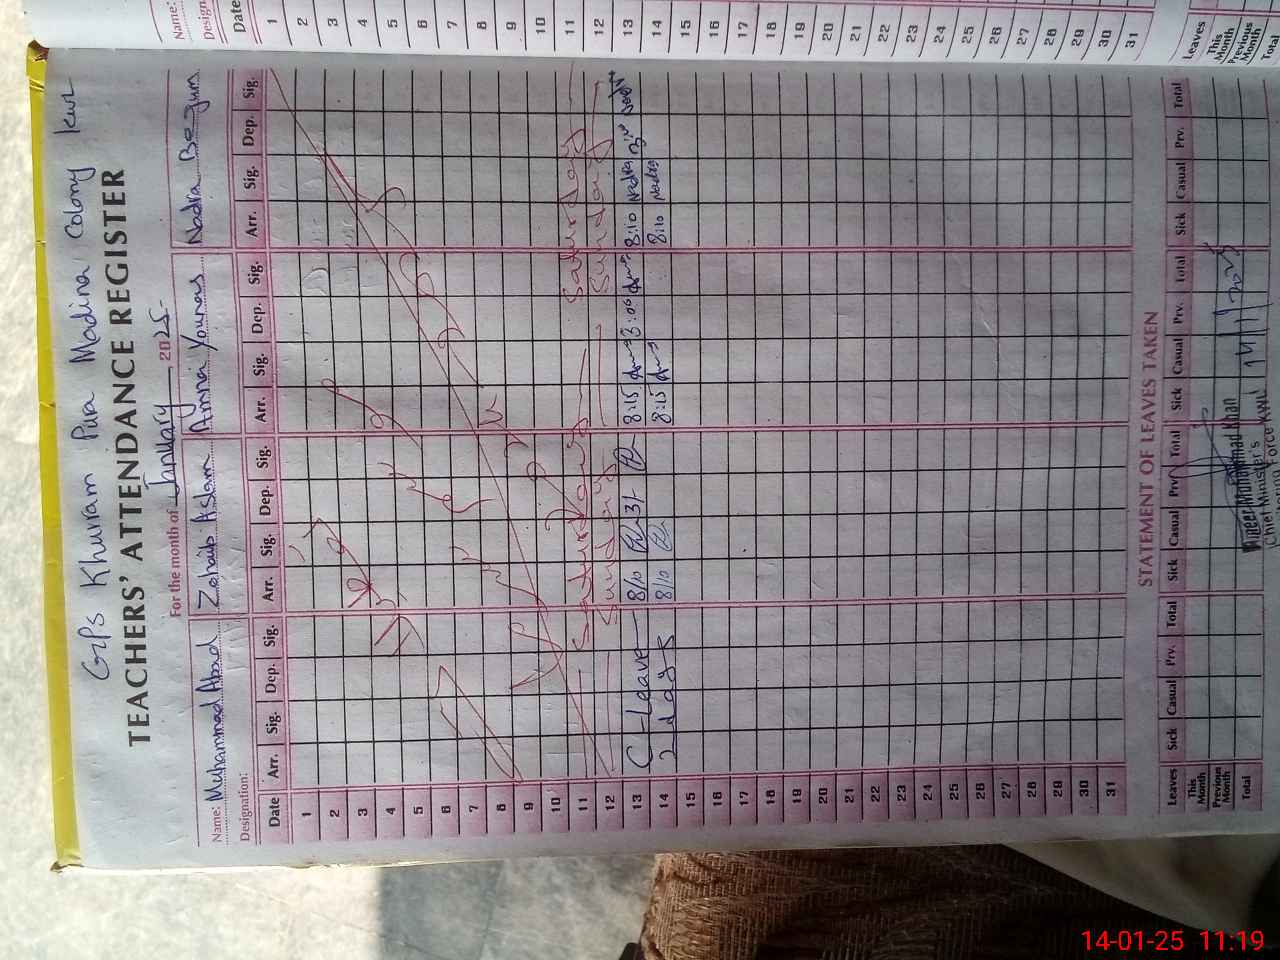 GPS Khurram Pura Madina Colony kwl
TEACHERS' ATTENDANCE REGISTER
For the month of January 2025
Name: Muhammad Abad Zohaib Aslam Amna Younas Nadra Begum
Designation:
Date Arr. Sig. Dep. Sig. Arr. Sig. Dep. Sig. Arr. Sig. Dep. Sig. Arr. Sig. Dep. Sig.
1
2
3
4
5
6
7
8
9
10
11 Saturday Saturday
12 Sunday Sunday
13 C-Leave 8/10 8:15 3:06 8:10 Nadra
14 2 days 8/10 8:15 8:10 Nadra
15
16
17
18
19
20
21
22
23
24
25
26
27
28
29
30
31
STATEMENT OF LEAVES TAKEN
Leaves Sick Casual Prv. Total Sick Casual Prv. Total Sick Casual Prv. Total Sick Casual Prv. Total
This Month
Previous Month
Total
Muhammad Khan 14/1/2025
Chief Minister's
Force KWL
Name:
Design
Date
1
2
3
4
5
6
7
8
9
10
11
12
13
14
15
16
17
18
19
20
21
22
23
24
25
26
27
28
29
30
31
Leaves
This Month
Previous Month
Total
14-01-25 11:19